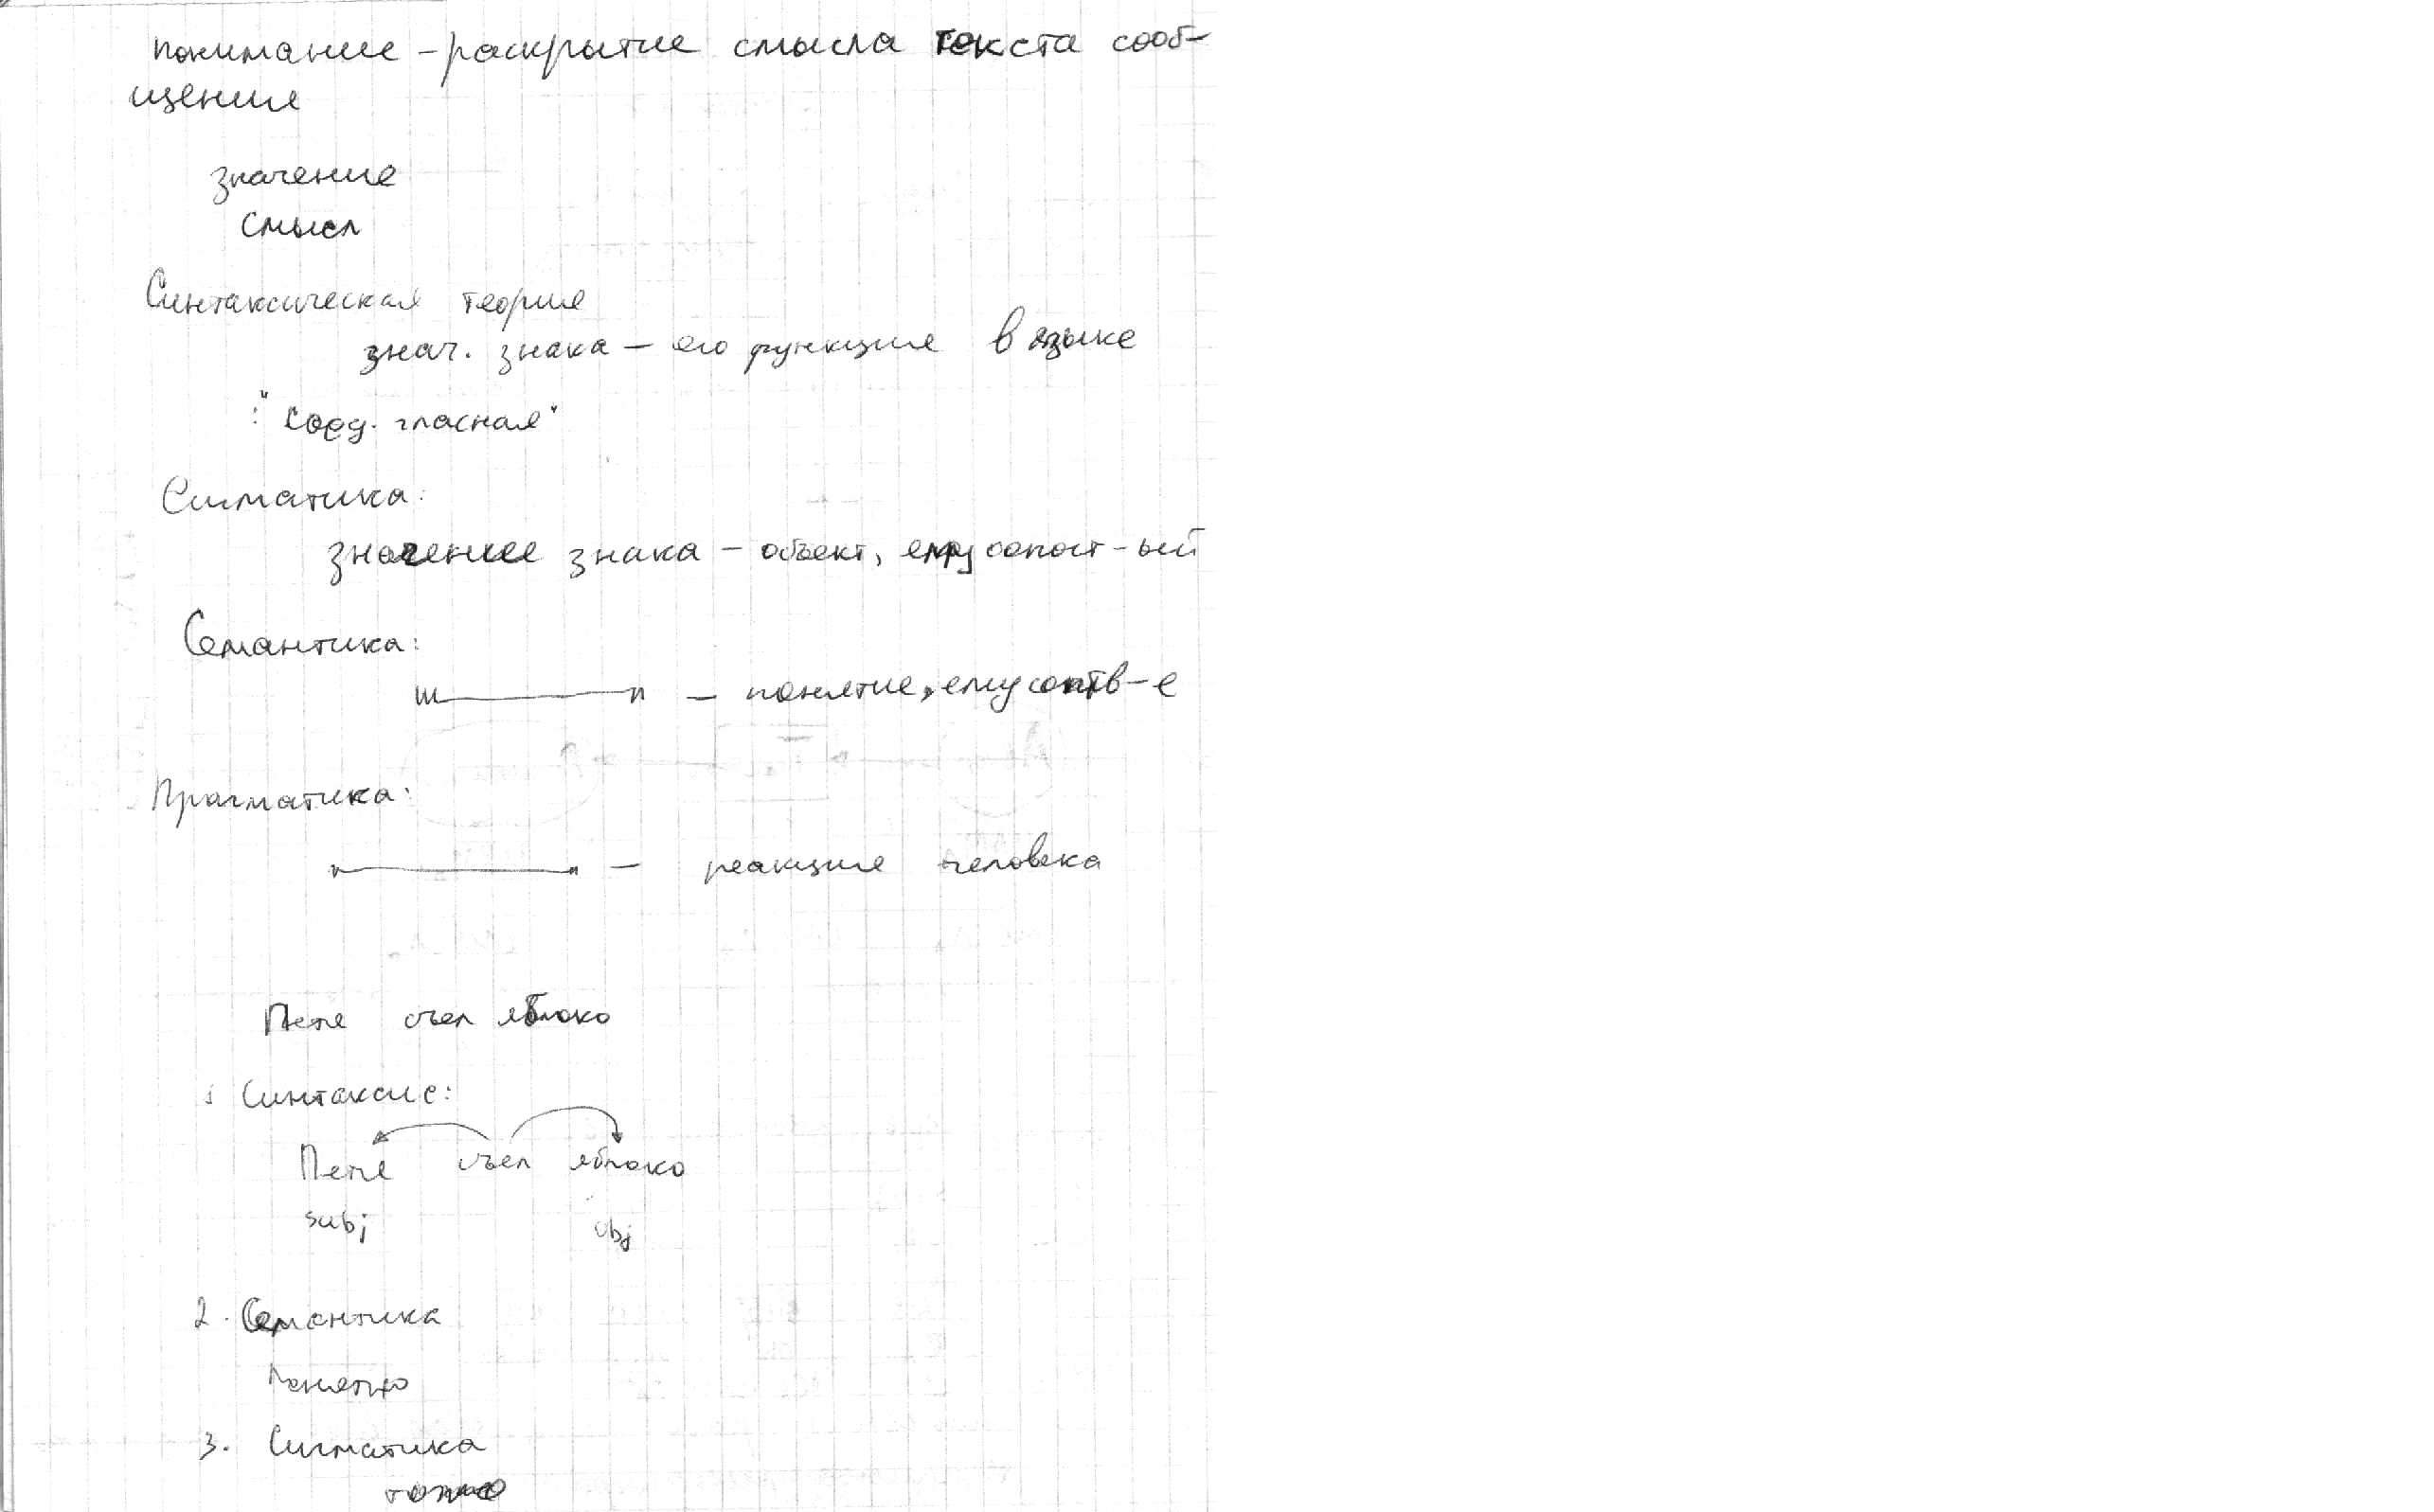 понимание – раскрытие смысла текста сооб-
щения
значение
смысл
Синтаксическая теория
знач. знака – его функция в языке
: "соед. гласная"
Сигматика:
значение знака – объект, ему сопост-ый
Семантика:
"——" – понятие, ему соотв-е
Прагматика:
"——" – реакция человека
Петя съел яблоко
1 Синтаксис:
Петя съел яблоко
subj obj
2. Семантика
Понятно
3. Сигматика